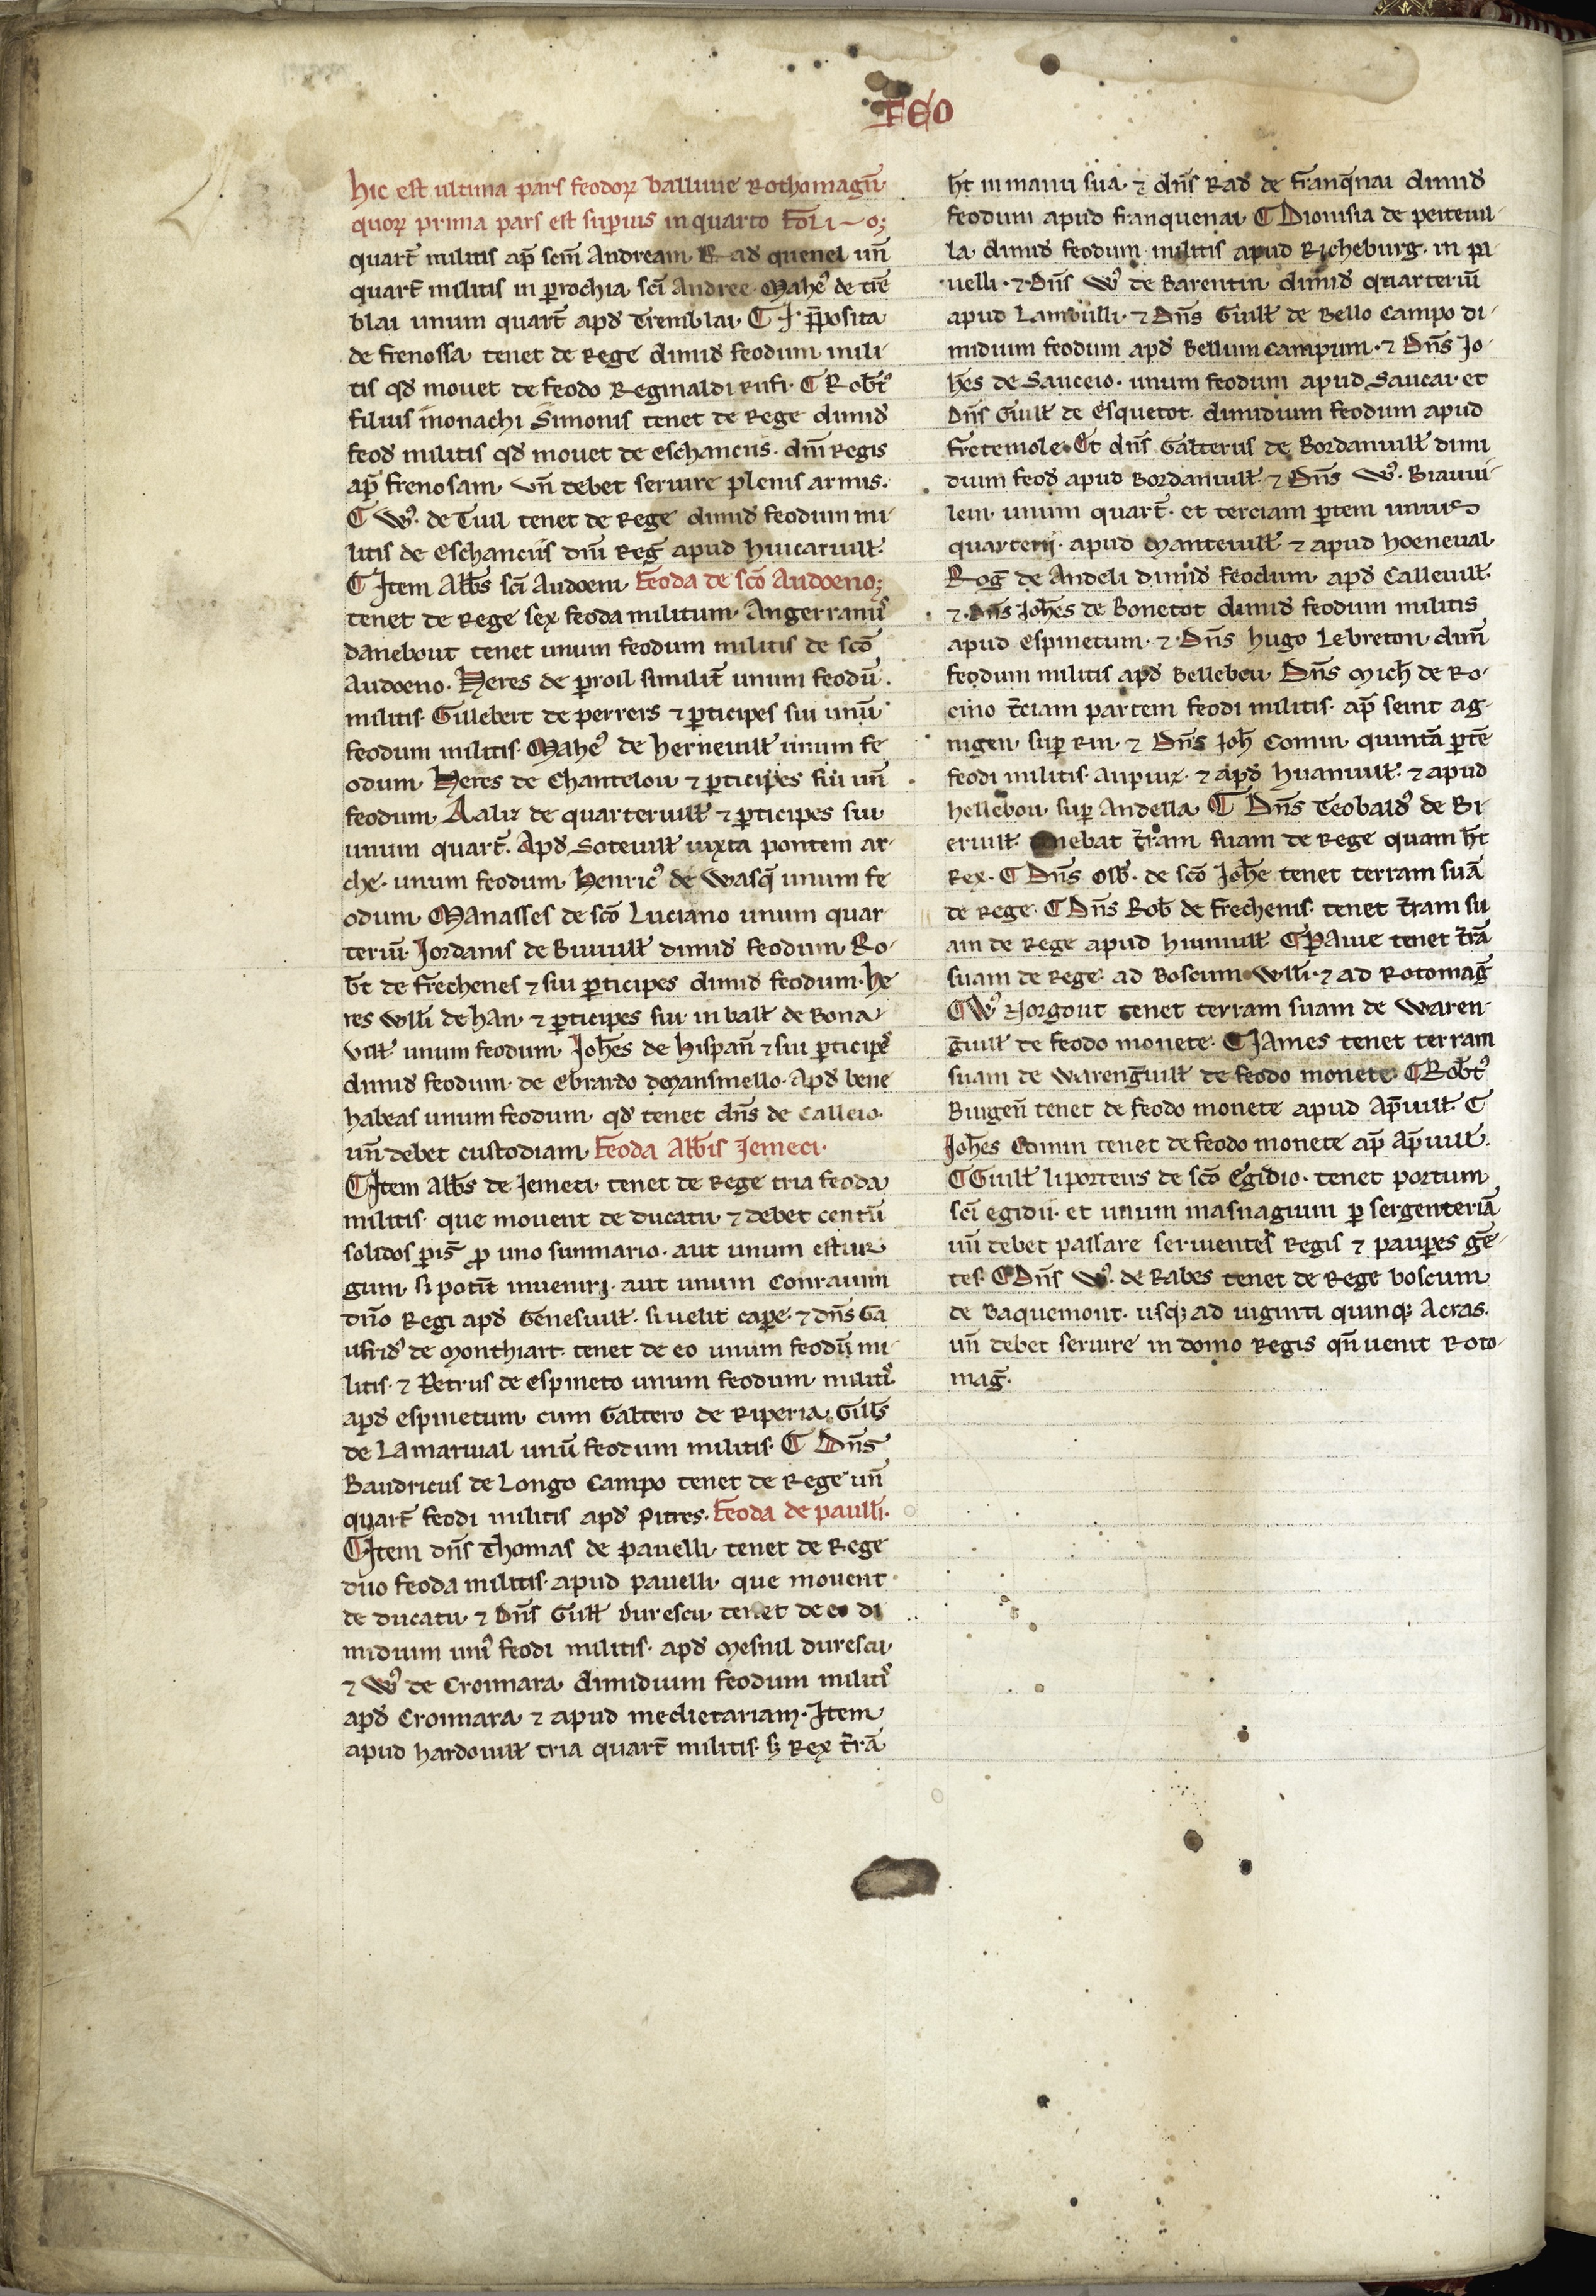 FEO
hic est ultima pars feodoꝝ balliuie Rothomagen̄
quoꝝ prima pars est suꝑius in quarto foli~o;
quart̄ militis ap̄ scm̄ Andream. Rad quenel un̄
quart̄ militis in ꝑrochia sci Andree. Mahe᷒ de tre
blai unum quart̄ apd Tremblai. ¶ I. p̄posita
de frenossa tenet de Rege dimid feodum mili
tis qd mouet de feodo Reginaldi rufi. ¶ Robt᷒
filius monachi Simonis tenet de Rege dimid
feod militis qd mouet de eschanciis. dni Regis
ap̄ frenosam. vn̄ debet seruire plenis armis.
¶ W᷒. de Tuil tenet de Rege dimid feodum mi
litis de eschanciis dni Reḡ apud hucaruill.
¶ Item Abbs sci Audoeni. Feoda de scō Audoeno;
tenet de Rege sex feoda militum. Angerranus
danebout tenet unum feodum militis de scō
Audoeno. Heres de ꝓroil similit̄ unum feodū.
militis. Gillebert de perrers ⁊ ꝑticipes sui unū
feodum militis. Mahe᷒ de herneuill unum fe
odum. Heres de Chantelou ⁊ ꝑticipes sui un̄
feodum. Aaliz de quarteruill ⁊ ꝑticipes sui
unum quart̄. Apd Soteuill iuxta pontem ar
che. unum feodum. Henric᷒ de Wasq̄ unum fe
odum. Manasses de scō Luciano unum quar
teriū. Jordanis de Buuill dimid feodum. Ro
bt de frechenes ⁊ sui ꝑticipes dimid feodum. he
res Willi de han ⁊ ꝑticipes sui in ball de Bona
vill unum feodum. Johes de hispan̄ ⁊ sui ꝑticipes
dimid feodum. de Ebrardo demansinello. Apd bene
habeas unum feodum. qd tenet dns de Calleio.
un̄ debet custodiam. Feoda Abbis Jemeci.
¶ Item Abbs de Jemeci. tenet de Rege tria feoda
militis. que mouent de ducatu. ⁊ debet centū
solidos pis̄ ꝓ uno summario. aut unum estur
gum. si potit inueniri. aut unum conraium
dno Regi apd Genesuill. si uelit caꝑe. ⁊ dns Ga
ufrid᷒ de Monthiart. tenet de eo unum feodū mi
litis. ⁊ Petrus de espineto unum feodum militis.
apd espinetum. cum Galtero de Riperia. Gills
de Lamarual unū feodum militis. ¶ Dns
Baudricus de Longo Campo tenet de Rege un̄
quart̄ feodi militis apd pitres. Feoda de paulli.
¶ Item dns Thomas de pauelli tenet de Rege
duo feoda militis apud pauelli. que mouent
de ducatu. ⁊ Dns Gill durescu tenet de eo di
midium uni᷒ feodi militis. apd Mesnil durescu.
⁊ W᷒ de Croimara dimidium feodum militis
apd Croimara ⁊ apud medietariam. Item
apud hardouill tria quart̄ militis. sꝫ Rex t̄rā
ht in manu sua. ⁊ dns Rad de franq̄nai dimid
feodum apud franquenai. ¶ Dionisia de peiteuil
la. dimid feodum militis apud Richeburg. in pa
uelli. ⁊ Dns W᷒ de Barentin dimid quarteriū
apud Lambuilli. ⁊ Dns Guill de Bello Campo di
midium feodum apd Bellum Campum. ⁊ Dns Jo
hes de Sauceio. unum feodum apud Saucai. et
Dns Guill de esquetot. dimidium feodum apud
fretemole. Et dns Galterus de Bordanuill dimi
dium feod apud Bordanuill. ⁊ Dns W᷒. Biauui
lein. unum quart̄. et terciam ꝑtem unius
quarterij. apud Manteuill ⁊ apud hoeneual.
Roḡ de Andeli dimid feodum apd Calleuill.
⁊ Dns Johes de Bonetot dimid feodum militis
apud espinetum. ⁊ Dns hugo Lebreton. dim̄
feodum militis apd Bellebeu. Dns Mich de Ro
cino t̄ciam partem feodi militis. ap̄ seint ag
nigen. suꝑ Rin. ⁊ Dns Joh Comin quintā ꝑtē
feodi militis. aupuiz. ⁊ apd huanuill. ⁊ apud
hellebou. suꝑ Andella. ¶ Dns Teobald᷒ de Bi
eruill nebat t̄ram suam de Rege quam ht
Rex. ¶ Dns Osb. de scō Johe tenet terram suā
de Rege. ¶ Dns Rob de frechenis. tenet t̄ram su
am de Rege apud himuill. ¶ Paiue tenet t̄rā
suam de Rege. ad Boscum Willi. ⁊ ad Rotomaḡ
¶ W᷒ Norgout tenet terram suam de Waren
guill de feodo monete. ¶ James tenet terram
suam de Warenguill de feodo monete. ¶ Robt᷒
Buigen̄ tenet de feodo monete apud Ap̄uill. ¶
Johes Comin tenet de feodo monete ap̄ Ap̄uill.
¶ Guill liporteurs de scō Egidio. tenet portum
sci egidii. et unum masnagium ꝑ sergenteriā
un̄ debet passare seruientes Regis ⁊ pauꝑes gē
tes. ¶ Dns W᷒. de Rabes tenet de Rege boscum
de Baquemont. usqꝫ ad uiginti quinqꝫ Acras.
un̄ debet seruire in domo Regis qn̄ uenit Roto
maḡ.